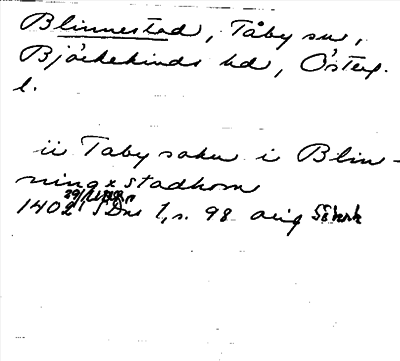 Blinnestad, Tåby sn,
Björkekinds hd, Österg.
l.
ii Taby sokn i Blin-
ningxstadhom
1402 SDns 1, s. 98 orig